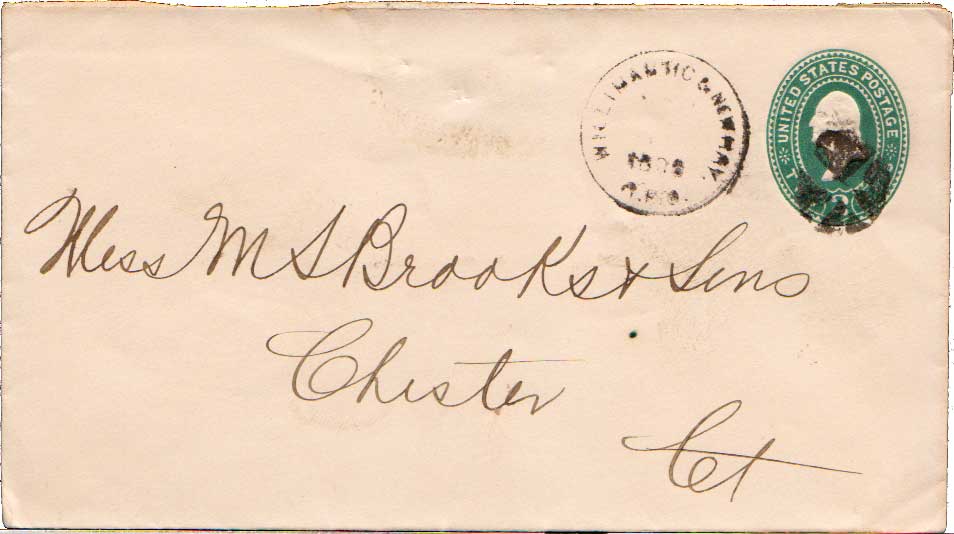 WILLIMANTIC & NEW HAV.
R.P.O.
UNITED STATES POSTAGE
2
Mess M S Brooks & Sons
Chester
Ct